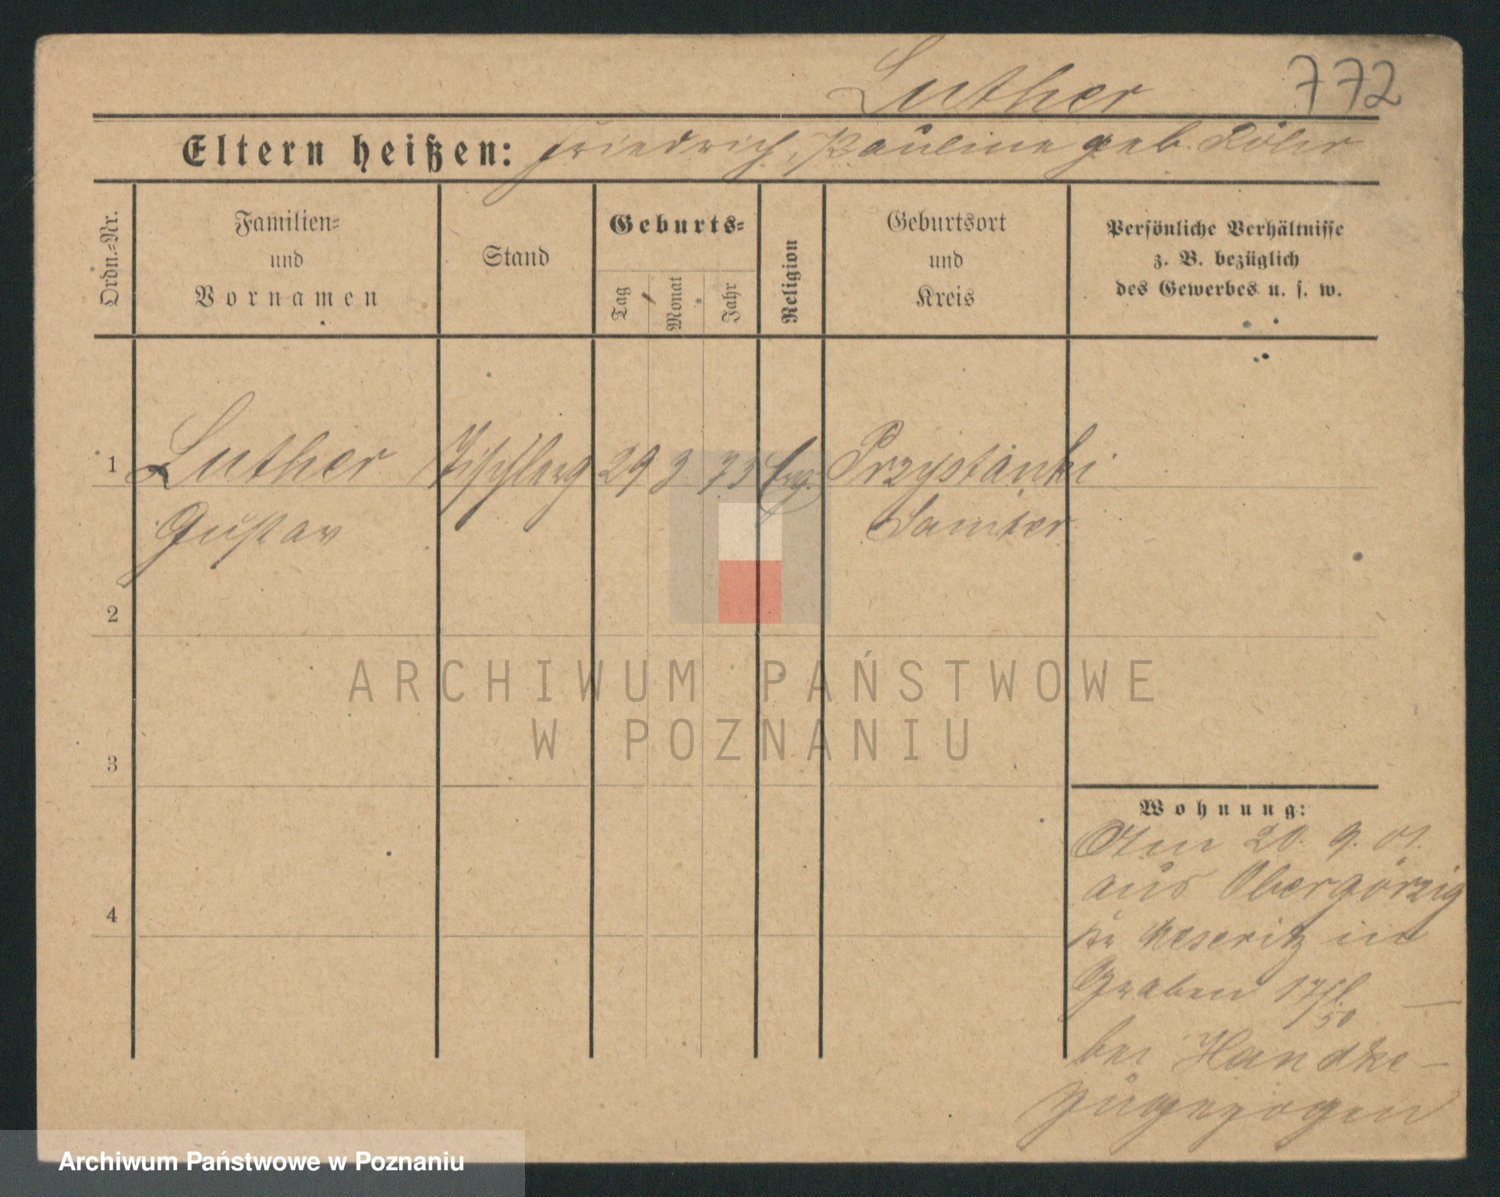 Luther 772
Eltern heißen: Friedrich, Pauline geb.
Ordn.-Nr.
Familien-
und
Vornamen
Stand
Geburts-
Tag
Monat
Jahr
Religion
Geburtsort
und
Kreis
Persönliche Verhältnisse
z. B. bezüglich
des Gewerbes u. s. w.
1 Luther Tischlerg 29 3 75 Evg. Przystanki
Gustav Samter
2
3
4
Wohnung:
Am 20. 9. 01.
aus Obergörzig
Kr Meseritz in
Graben
bei Handke
zugezogen
ARCHIWUM PAŃSTWOWE
W POZNANIU
Archiwum Państwowe w Poznaniu